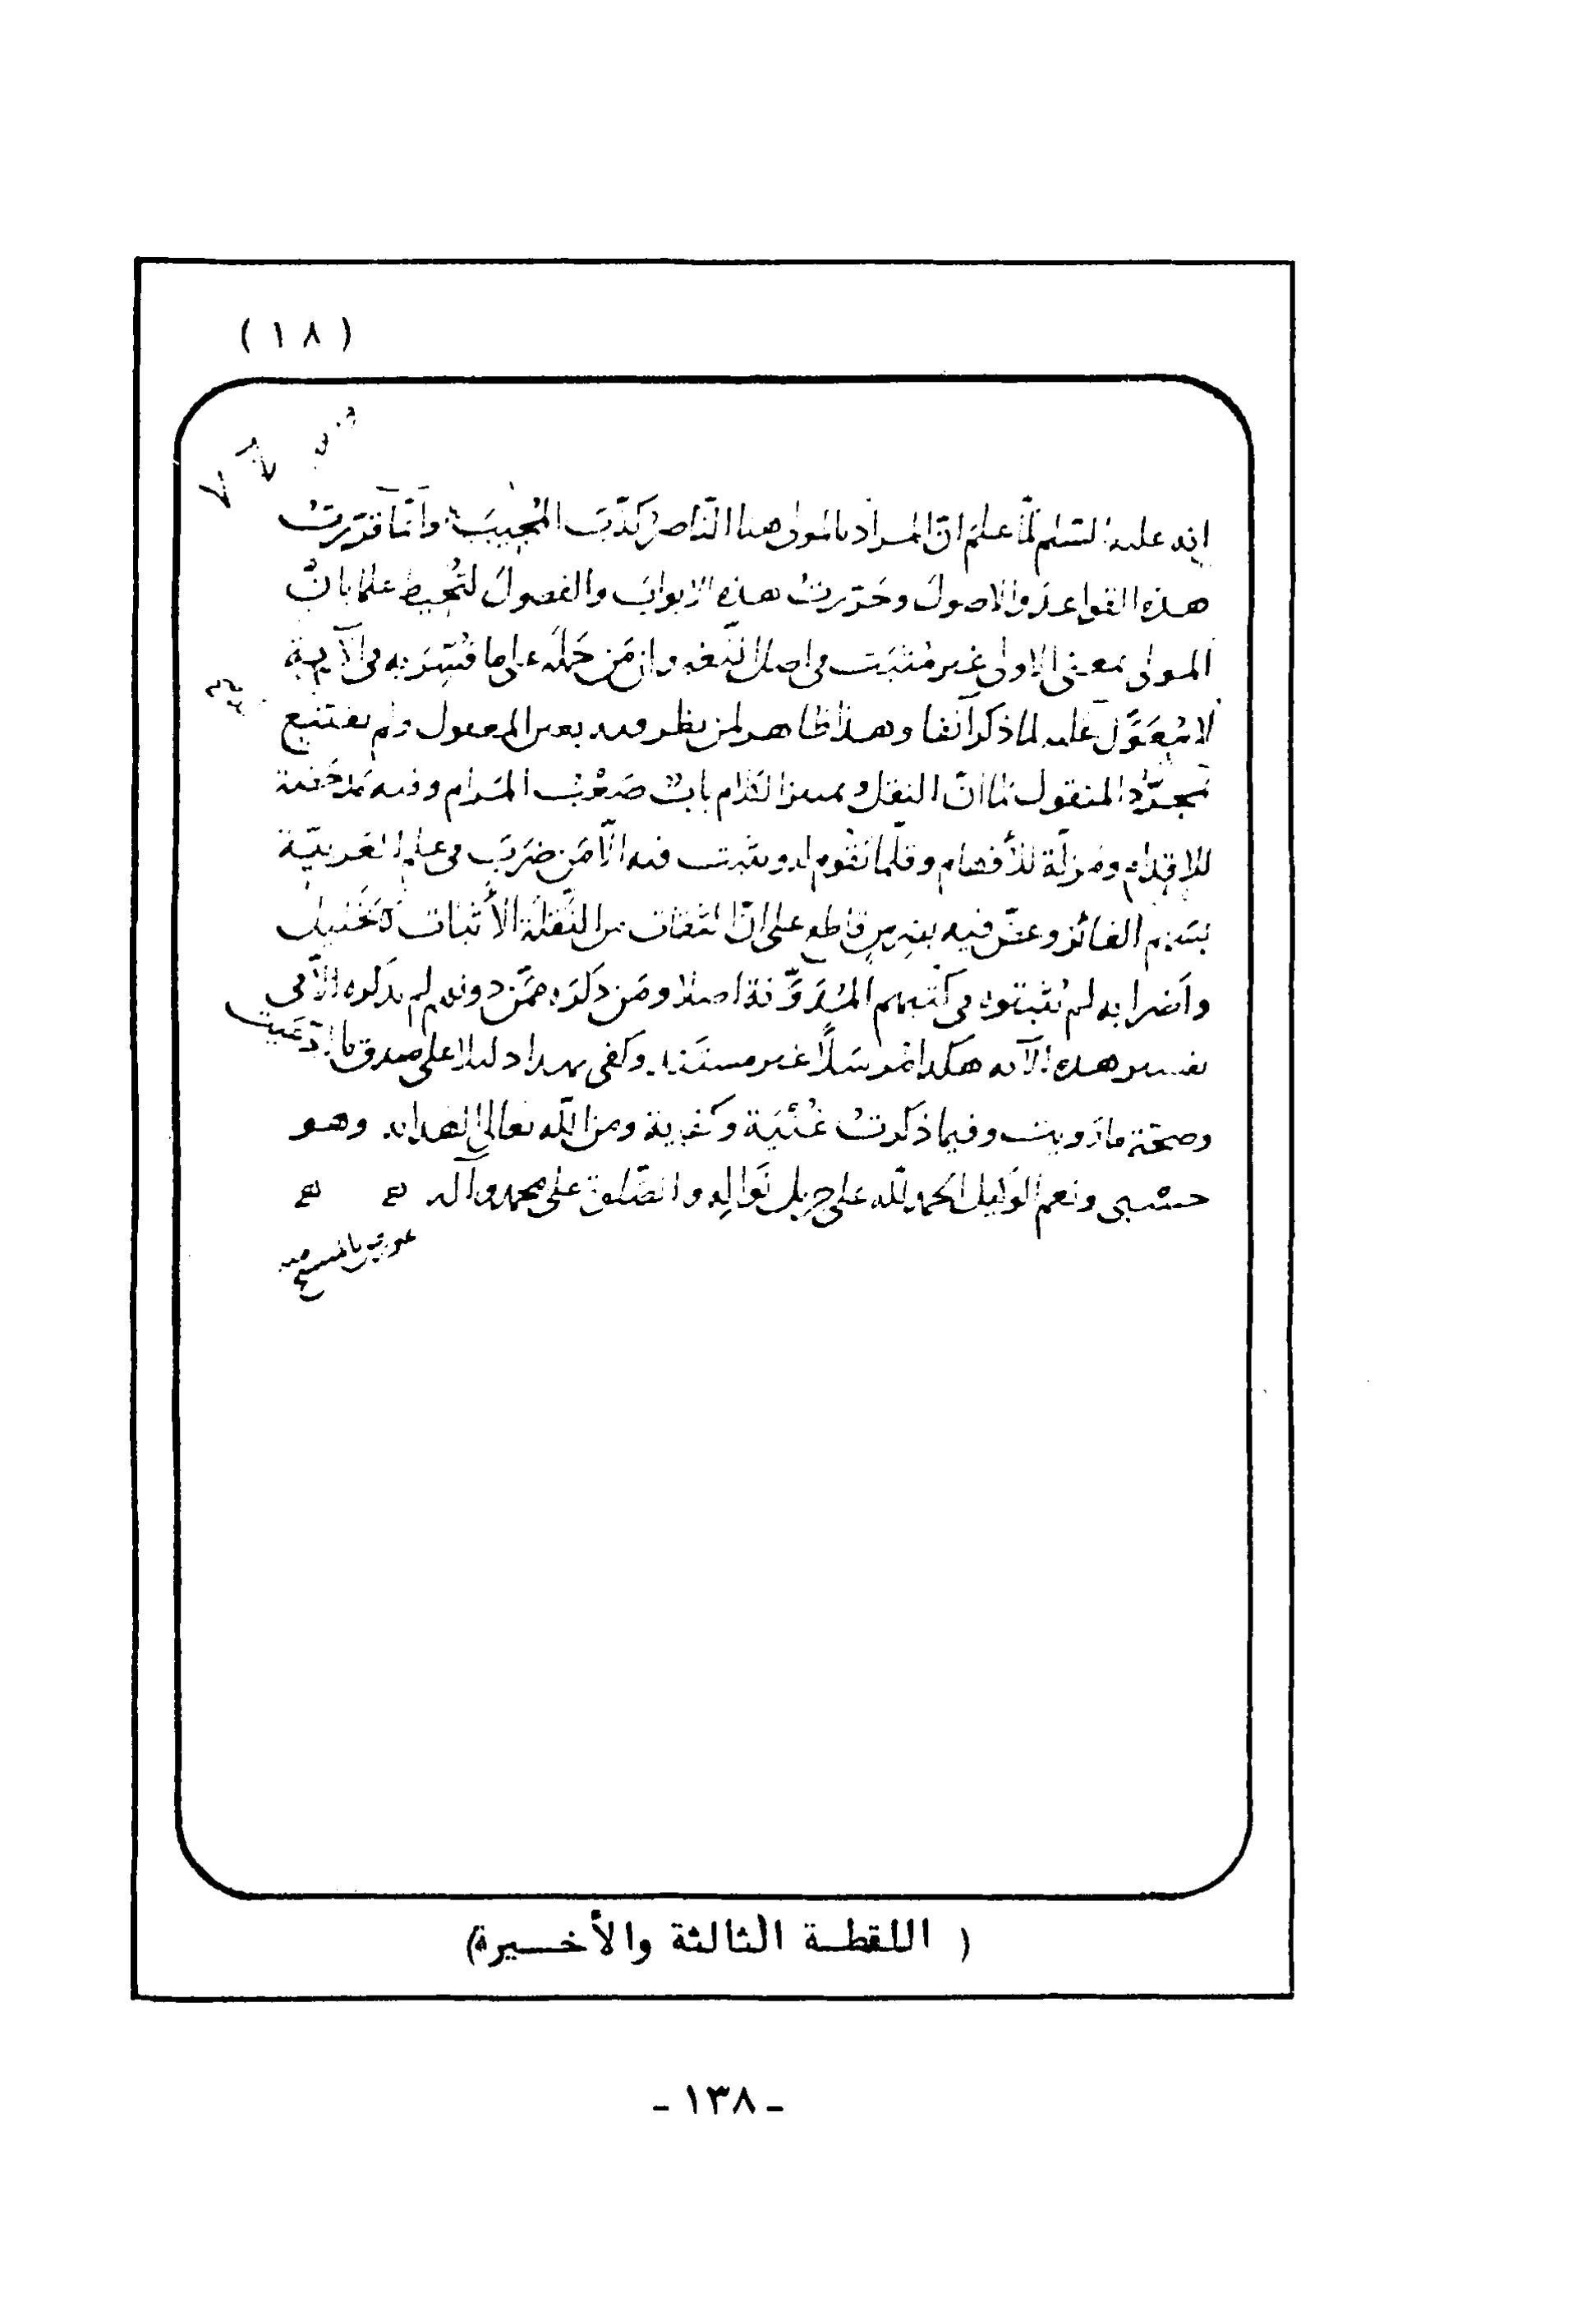 ( ١٨ )
انه عليه السلم لما علم ان المراد بالمولى هنا الناصر كذّب المُجيبَ وانما قرّرتُ
هذه القواعد والاصولَ وحَرّرتُ هذه الابوابَ والفصولَ لتُحيط علما بانّ
المولى بمعنى الاولى غير مُثبَت في اصل اللغه وان مَن حَمَلَه على ما فُسِّرَ به فى الآية
لا مُعَوَّل عليه لما ذكر آنفا وهذا ظاهر لمن نظر فيه بعين المعقول ولم يقتنع
بمجرّد المنقول كما انّ النقل وتمييز الكلام بابٌ صَعْبُ المَرام وفيه مَدحَضة
للاقدام ومَزلّة للأفهام وقلّما يَقوم له ويثبت فيه الّا مَن ضَرَبَ في علم العَربيّة
بسَهم الفائز وعضّ فيه بضرس قاطع على انّ الثقات من النَّقَلة الأثبات كالخليل
واَضرابه لم يُثبتوه فى كتبهم المُدَوَّنة اصلا ومَن ذكرَه ممّن دونهم لم يذكره الّا فى
تفسير هذه الآيه هكذا مُرسَلًا غير مسنَد وكفى بهذا دليلا على صدق ما ادّعَيت
وصحّة ما رَويت وفيما ذكرتُ غُنْيَة وكفاية ومن الله تعالى الهدايه وهو
حَسْبى ونعم الوَكيل الحمد لله على جزيل نَوالِه والصّلوة على محمد وآله
( اللقطة الثالثة والأخيرة)
- ١٣٨ -